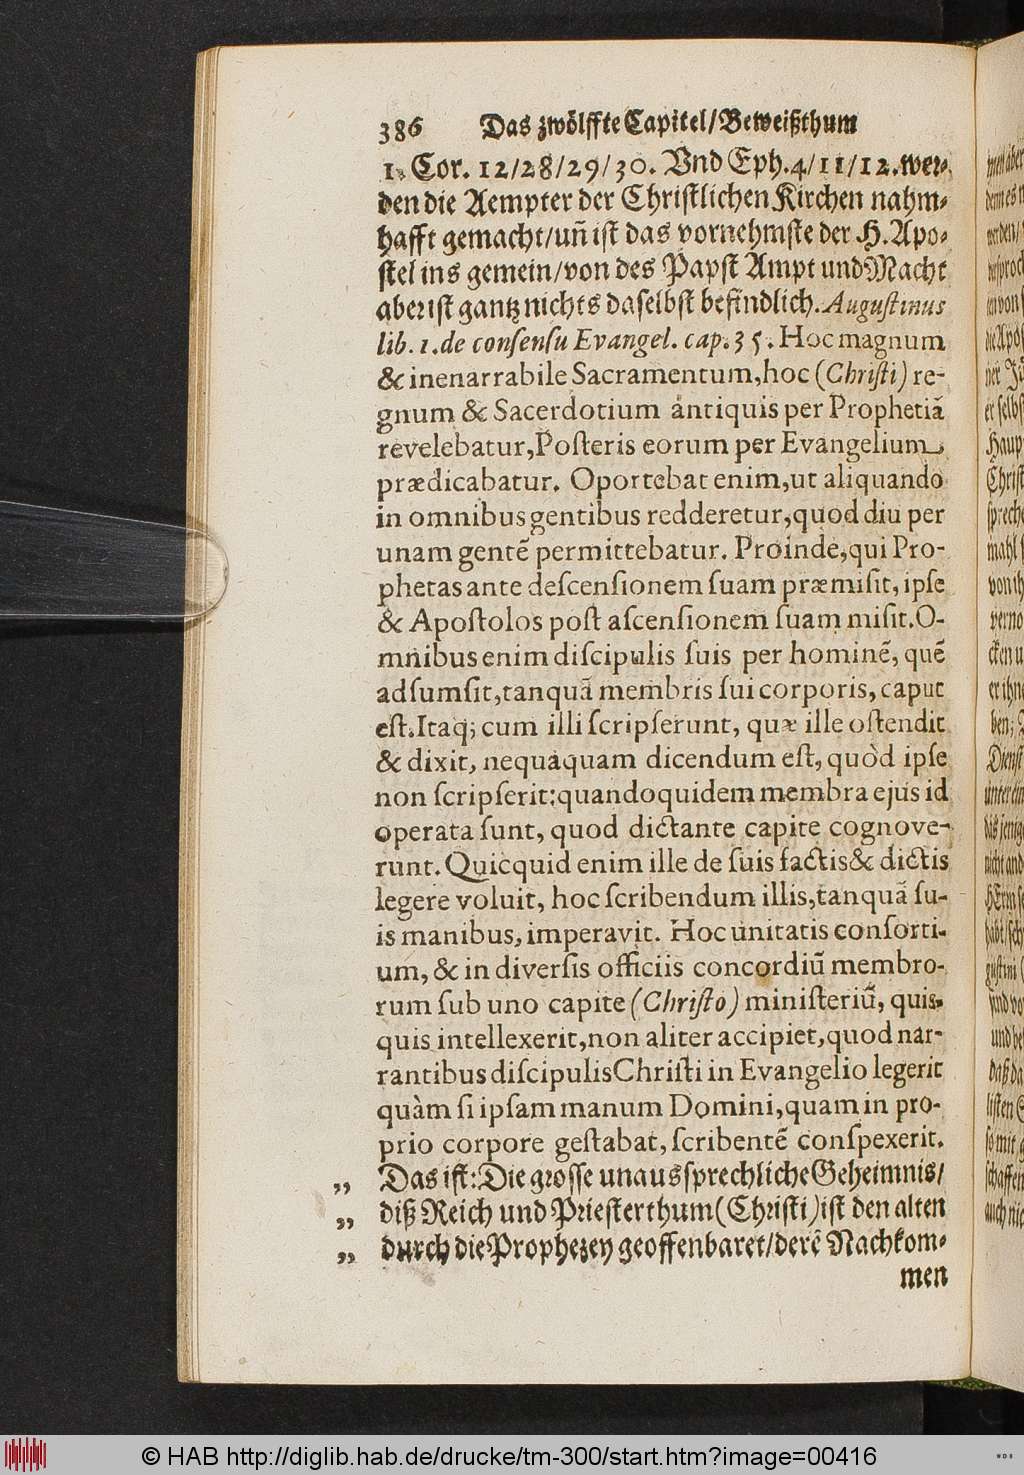 386 Das zwölffte Capitel/Beweißthum
1. Cor. 12/28/29/30. Vnd Eph. 4/11/12. wer-
den die Aempter der Christlichen Kirchen nahm-
hafft gemacht/uñ ist das vornehmste der H. Apo-
stel ins gemein/von des Papst Ampt und Macht
aber ist gantz nichts daselbst befindlich. Augustinus
lib. 1. de consensu Evangel. cap. 35. Hoc magnum
& inenarrabile Sacramentum, hoc (Christi) re-
gnum & Sacerdotium antiquis per Prophetiã
revelebatur, Posteris eorum per Evangelium
prædicabatur. Oportebat enim, ut aliquando
in omnibus gentibus redderetur, quod diu per
unam gentẽ permittebatur. Proinde, qui Pro-
phetas ante descensionem suam præmisit, ipse
& Apostolos post ascensionem suam misit. O-
mnibus enim discipulis suis per hominẽ, quẽ
adsumsit, tanquã membris sui corporis, caput
est. Itaq; cum illi scripserunt, quæ ille ostendit
& dixit, nequaquam dicendum est, quòd ipse
non scripserit: quandoquidem membra ejus id
operata sunt, quod dictante capite cognove-
runt. Quicquid enim ille de suis factis & dictis
legere voluit, hoc scribendum illis, tanquã su-
is manibus, imperavit. Hoc unitatis consorti-
um, & in diversis officiis concordiũ membro-
rum sub uno capite (Christo) ministeriũ, quis-
quis intellexerit, non aliter accipiet, quod nar-
rantibus discipulis Christi in Evangelio legerit
quàm si ipsam manum Domini, quam in pro-
prio corpore gestabat, scribentẽ conspexerit.
„ Das ist: Die grosse unaussprechliche Geheimnis/
„ diß Reich und Priesterthum (Christi) ist den alten
„ durch die Prophezey geoffenbaret/derẽ Nachkom-
men
© HAB http://diglib.hab.de/drucke/tm-300/start.htm?image=00416